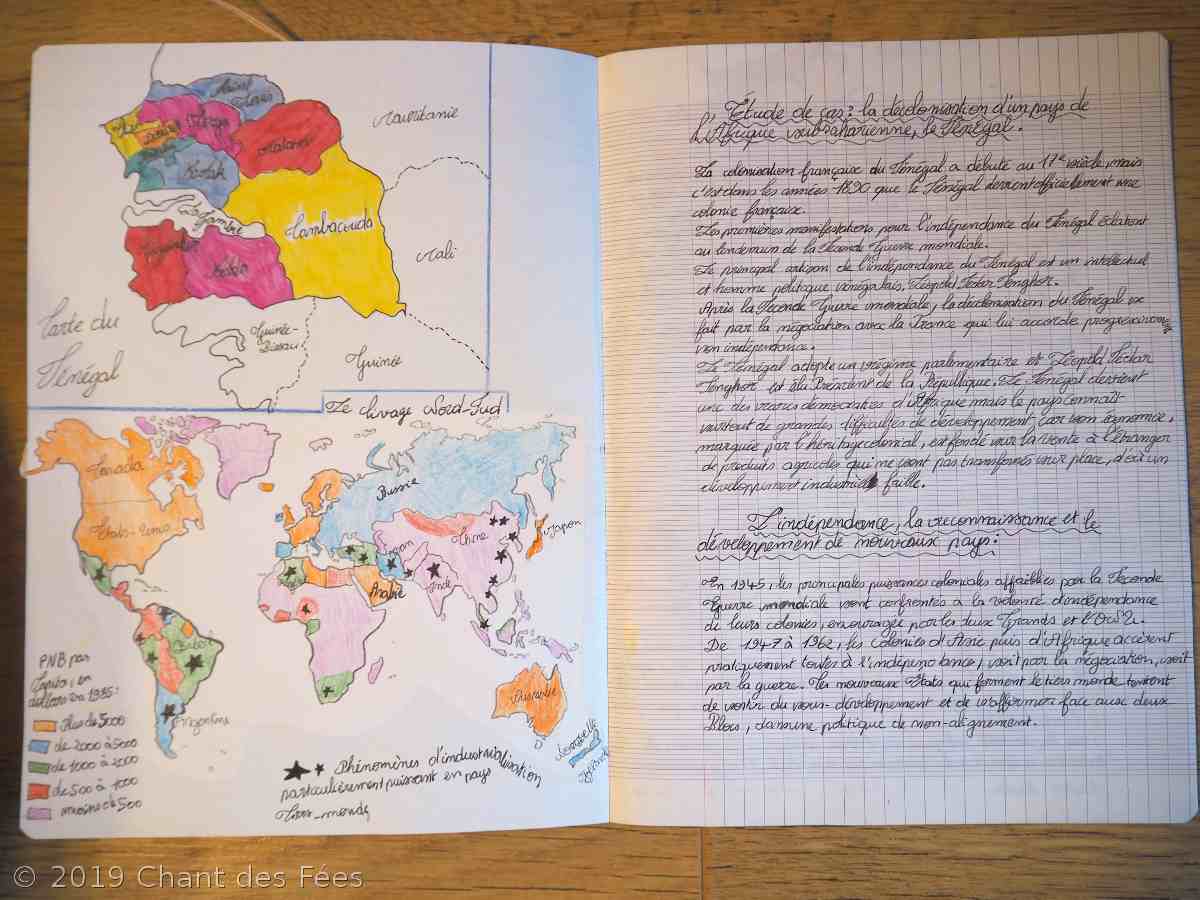 Saint
Louis
Louga
Matam
Kaolak
La Gambie
Tambacouda
Kolda
Mauritanie
Mali
Guinée-
Bissau
Guinée
Carte du
Sénégal
Le clivage Nord-Sud
Canada
Etats-Unis
Russie
Chine
Japon
Iran
Inde
Arabie
Brésil
Argentine
Australie
Nouvelle
Zélande
PNB par
capita, en
dollars en 1985:
Plus de 5000
de 2000 à 5000
de 1000 à 2000
de 500 à 1000
moins de 500
Phénomènes d'industrialisation
particulièrement puissant en pays
Tiers-monde
Étude de cas: la décolonisation d'un pays de
l'Afrique subsaharienne, le Sénégal.
La colonisation française du Sénégal a débuté au 17e siècle, mais
c'est dans les années 1890 que le Sénégal devient officiellement une
colonie française.
Les premières manifestations pour l'indépendance du Sénégal éclatent
au lendemain de la Seconde Guerre mondiale.
Le principal artisan de l'indépendance du Sénégal est un intellectuel
et homme politique sénégalais, Léopold Sédar Senghor.
Après la Seconde Guerre mondiale, la décolonisation du Sénégal se
fait par la négociation avec la France qui lui accorde progressivement
son indépendance.
Le Sénégal adopte un régime parlementaire et Léopold Sédar
Senghor est élu Président de la République. Le Sénégal devient
une des vraies démocraties d'Afrique mais le pays connait
surtout de grandes difficultés de développement car son économie,
marquée par l'héritage colonial, est fondé sur la vente à l'étranger
de produits agricoles qui ne sont pas transformés sur place, d'où un
développement industriel faible.
L'indépendance, la reconnaissance et le
développement de nouveaux pays:
En 1945, les principales puissances coloniales affaiblies par la Seconde
Guerre mondiale sont confrontés à la volonté d'indépendance
de leurs colonies, encouragée par les deux Grands et l'ONU.
De 1947 à 1962, les colonies d'Asie puis d'Afrique accèdent
pratiquement toutes à l'indépendance, soit par la négociation, soit
par la guerre. Les nouveaux États qui forment le tiers monde tentent
de sortir du sous-développement et de s'affirmer face aux deux
Blocs, dans une politique de non-alignement.
© 2019 Chant des Fées